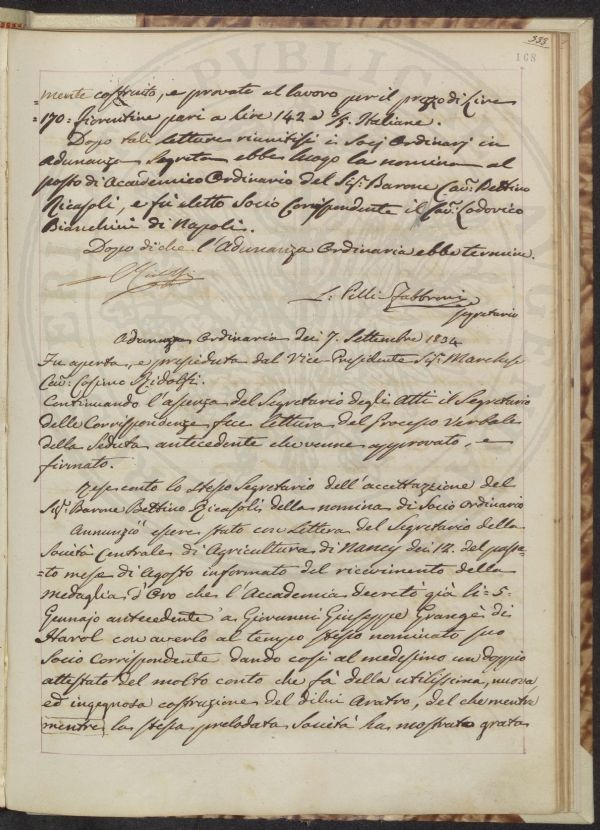 333
168
=mente costruito, e provato al lavoro per il prezzo di Lire
=170= fiorentine pari a Lire 142 e Italiane.
Dopo tali letture riunitisi i Socj Ordinarj in
adunanza Segreta ebbe luogo la nomina al
posto di Accademico Ordinario del Sig. Barone Cav. Bettino
Ricasoli, e fu eletto Socio Corrispondente il Cav. Lodovico
Bianchini di Napoli.
Dopo di che l'Adunanza Ordinaria ebbe termine.
C Ridolfi
L. Pelli Fabbroni
Segretario
Adunanza Ordinaria dei 7. Settembre 1834
Fu aperta, e preseduta dal Vice-Presidente Sig. Marchese
Cav. Cosimo Ridolfi.
Continuando l'assenza del Segretario degli Atti il Segretario
delle Corrispondenze fece lettura del Processo Verbale
della Seduta antecedente che venne approvato, e
firmato.
Rese conto lo stesso Segretario dell'accettazione del
Sig. Barone Bettino Ricasoli della nomina di Socio Ordinario
Annunziò essere stato con Lettera del Segretario della
Società Centrale di Agricultura di Nancy dei 12. del passa-
=to mese di Agosto informato del ricevimento della
medaglia d'Oro che l'Accademia decretò già li=5=
Gennajo antecedente a Giovanni Giuseppe Grangè di
Harol con averlo al tempo stesso nominato suo
Socio Corrispondente dando così al medesimo un doppio
attestato del molto conto che fà della utilissima, nuova,
ed ingegnosa costruzione del dilui Aratro, del che mentre
mentre la stessa prelodata Società ha mostrato grata